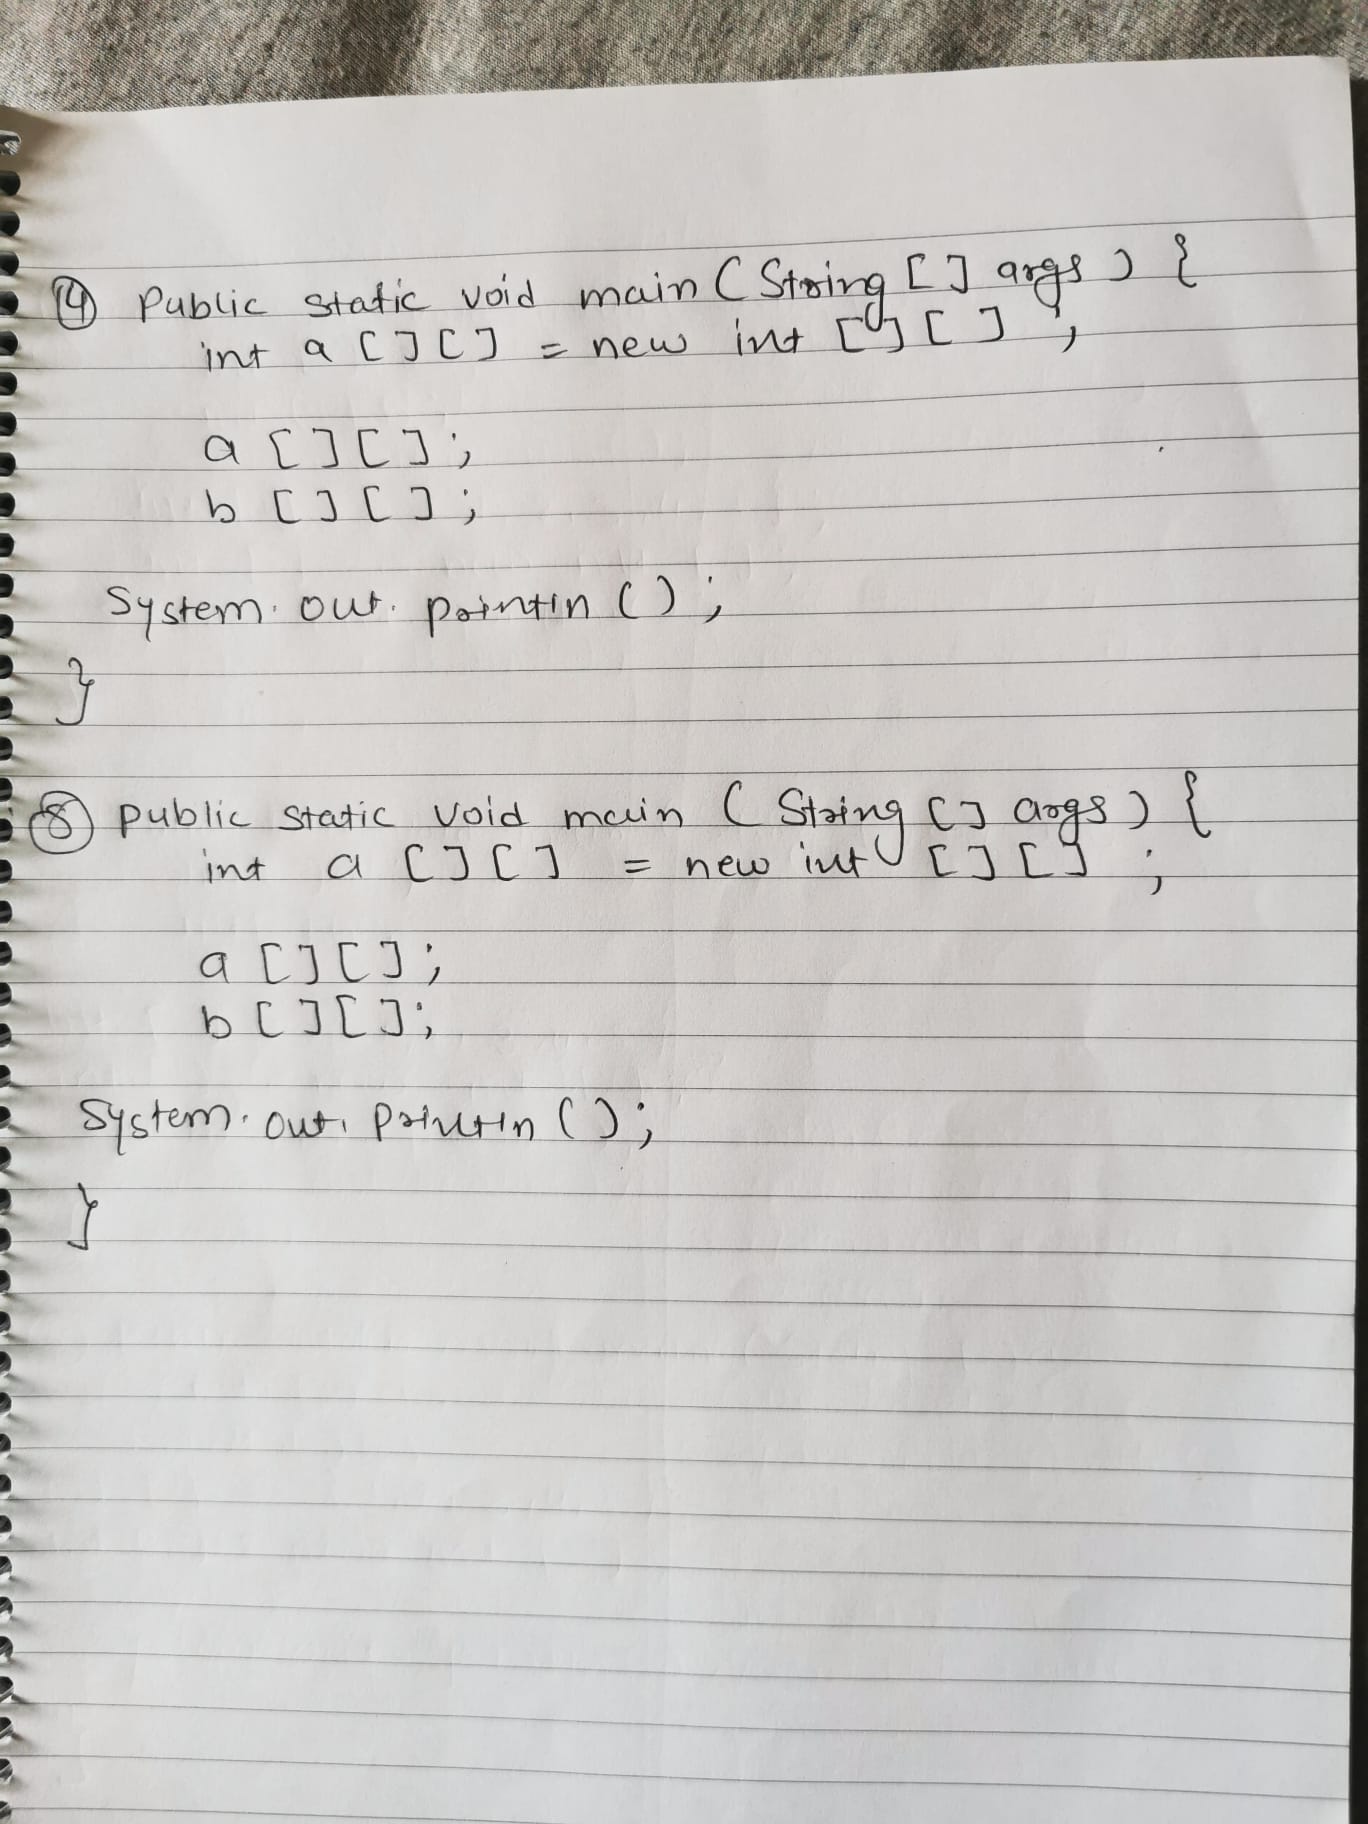 ④ Public static void main ( String [ ] args ) {
int a [ ] [ ] = new int [ ] [ ] ;
a [ ] [ ] ;
b [ ] [ ] ;
System. out. println ( ) ;
}
⑧ public static void main ( String [ ] args ) {
int a [ ] [ ] = new int [ ] [ ] ;
a [ ] [ ] ;
b [ ] [ ] ;
System. out. println ( ) ;
}